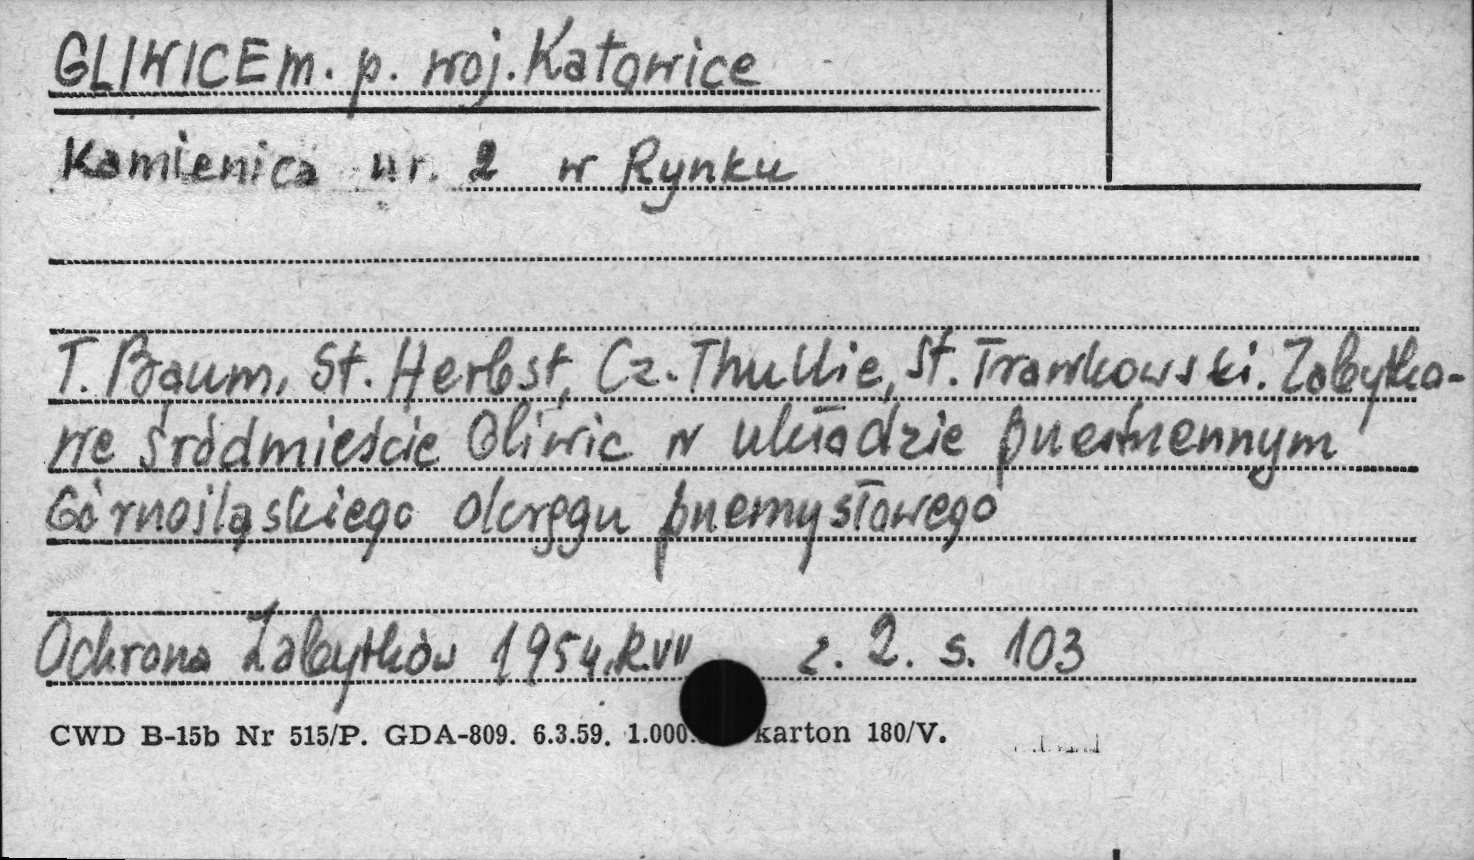 GLIWICE m. p. woj. Katowice
Kamienica nr. 2 w Rynku
T. Baum, St. Herbst, Cz. Thullie, St. Trawkowski. Zabytko-
we śródmieście Gliwic w układzie przestrzennym
Górnośląskiego okręgu przemysłowego
Ochrona Zabytków 1954, R. VII z. 2. s. 103
CWD B-15b Nr 515/P. GDA-809. 6.3.59. 1.000. karton 180/V.